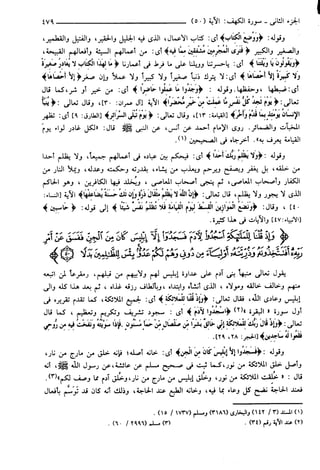 الجزء الثاني ــ سورة الكهف: الآية (٥٠) ٤٧٩
وقوله: ﴿ووضع الكتاب﴾ أي: كتاب الأعمال، الذي فيه الجليل والحقير، والفتيل والقطمير،
والصغير والكبير ﴿فترى المجرمين مشفقين مما فيه﴾ أي: من أعمالهم السيئة وأفعالهم القبيحة،
﴿ويقولون يا ويلتنا﴾ أي: يا حسرتنا وويلنا على ما فرط في أعمارنا ﴿مال هذا الكتاب لا يغادر صغيرة
ولا كبيرة إلا أحصاها﴾ أي: لا يترك ذنباً صغيراً ولا كبيراً ولا عملاً وإن صغر ﴿إلا أحصاها﴾
أي: ضبطها، وحفظها. وقوله: ﴿ووجدوا ما عملوا حاضرا﴾ أي: من خير أو شر، كما قال
تعالى: ﴿يوم تجد كل نفس ما عملت من خير محضرا﴾ الآية [آل عمران: ٣٠]، وقال تعالى: ﴿ينبأ
الإنسان يومئذ بما قدم وأخر﴾ [القيامة: ١٣]، وقال تعالى: ﴿يوم تبلى السرائر﴾ [الطارق: ٩] أي: تظهر
المخبآت والضمائر. روى الإمام أحمد عن أنس، عن النبي ﷺ قال: «لكل غادر لواء يوم
القيامة يعرف به». أخرجاه في الصحيحين (١).
وقوله: ﴿ولا يظلم ربك أحدا﴾ أي: فيحكم بين عباده في أعمالهم جميعاً، ولا يظلم أحداً
من خلقه، بل يغفر ويصفح ويرحم ويعذب من يشاء، بقدرته وحكمته وعدله، ويملأ النار من
الكفار وأصحاب المعاصي، ثم ينجي أصحاب المعاصي، ويخلد فيها الكافرين، وهو الحاكم
الذي لا يجور ولا يظلم، قال تعالى: ﴿إن الله لا يظلم مثقال ذرة وإن تك حسنة يضاعفها﴾ الآية [النساء:
٤٠]، وقال: ﴿ونضع الموازين القسط ليوم القيامة فلا تظلم نفس شيئا﴾ إلى قوله: ﴿حاسبين﴾
[الأنبياء: ٤٧] والآيات في هذا كثيرة.
﴿وإذ قلنا للملائكة اسجدوا لآدم فسجدوا إلا إبليس كان من الجن ففسق عن أمر
ربه أفتتخذونه وذريته أولياء من دوني وهم لكم عدو بئس للظالمين بدلا﴾
يقول تعالى منبهاً بني آدم على عداوة إبليس لهم ولأبيهم من قبلهم، ومقرعاً لمن اتبعه
منهم وخالف خالقه ومولاه، الذي أنشأه وابتداه، وبألطاف رزقه غذاه، ثم بعد هذا كله والى
إبليس وعادى الله، فقال تعالى: ﴿وإذ قلنا للملائكة﴾ أي: لجميع الملائكة، كما تقدم تقريره في
أول سورة «البقرة»(٢) ﴿اسجدوا لآدم﴾ أي: سجود تشريف وتكريم وتعظيم، كما قال
تعالى: ﴿وإذ قال ربك للملائكة إني خالق بشرا من صلصال من حمإ مسنون. فإذا سويته ونفخت فيه من روحي
فقعوا له ساجدين﴾ [الحجر: ٢٨، ٢٩].
وقوله: ﴿فسجدوا إلا إبليس كان من الجن﴾ أي: خانه أصله؛ فإنه خلق من مارج من نار،
وأصل خلق الملائكة من نور، كما ثبت في صحيح مسلم عن عائشة، عن رسول الله ﷺ، أنه
قال: «خلقت الملائكة من نور، وخلق إبليس من مارج من نار، وخلق آدم مما وصف لكم»(٣).
فعند الحاجة نضح كل وعاء بما فيه، وخانه الطبع عند الحاجة، وذلك أنه كان قد توسم بأفعال
(١) المسند (٣/ ١٤٢) والبخاري (٣١٨٦) ومسلم (١٧٣٧/ ١٥).
(٢) عند الآية رقم (٣٤). (٣) مسلم (٢٩٩٦/ ٦٠).